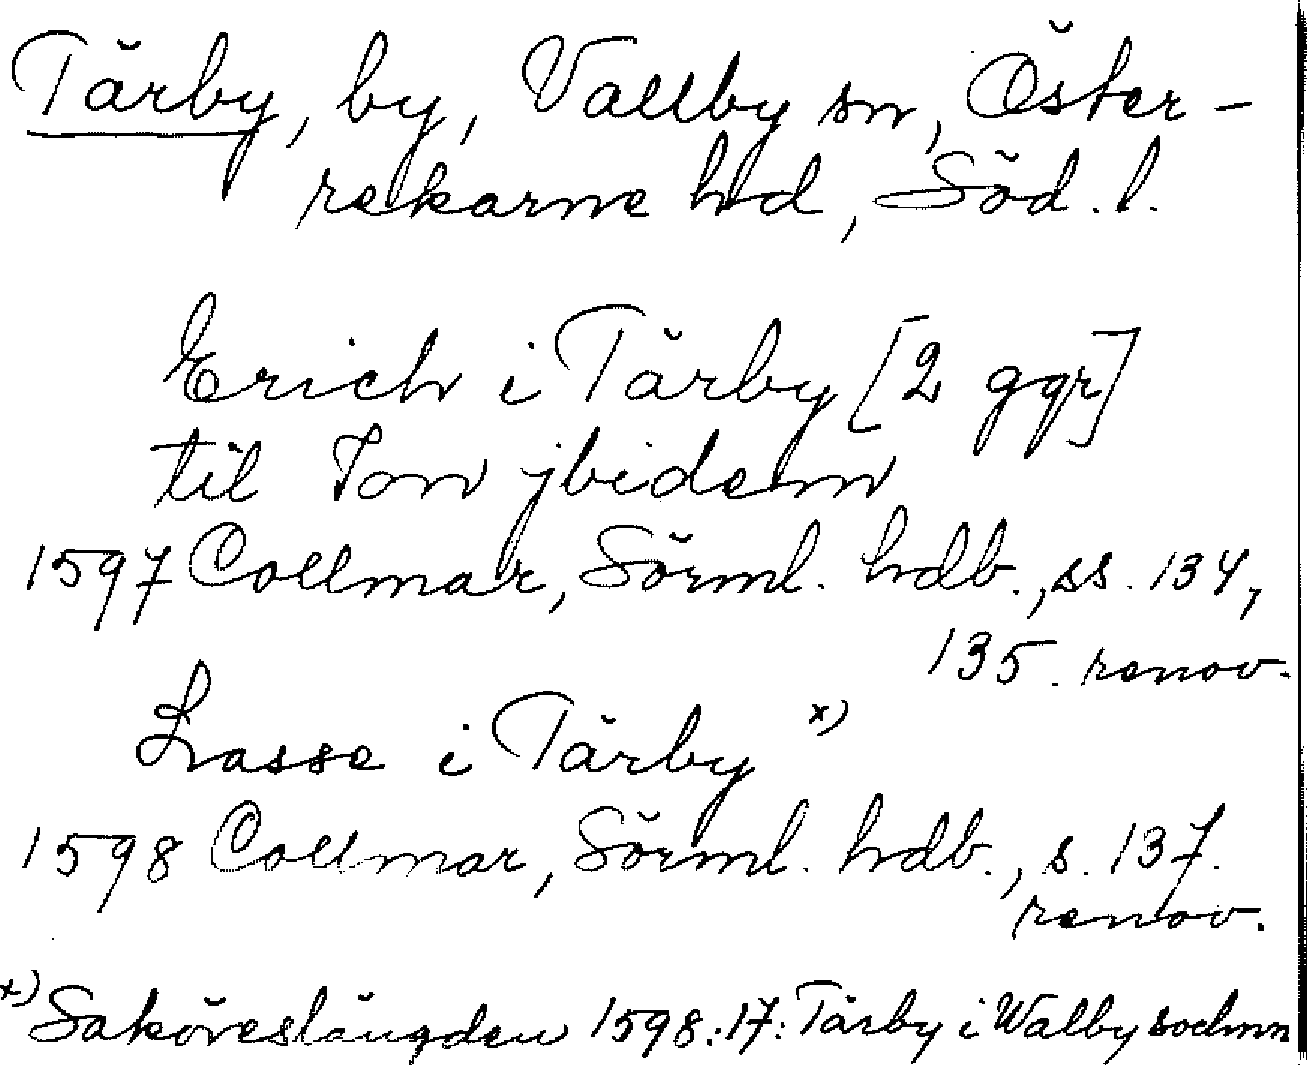 Tärby, by, Vallby sn, Öster-
rekarne hd, Söd. l.
Erich i Tärby [2 ggr]
til Jon jbidem
1597 Collmar, Sörml. hdb., ss. 134,
135. renov.
Lasse i Tärby x)
1598 Collmar, Sörml. hdb., s. 137.
renov.
x) Saköreslängden 1598:17: Tärby i Walby sochnn